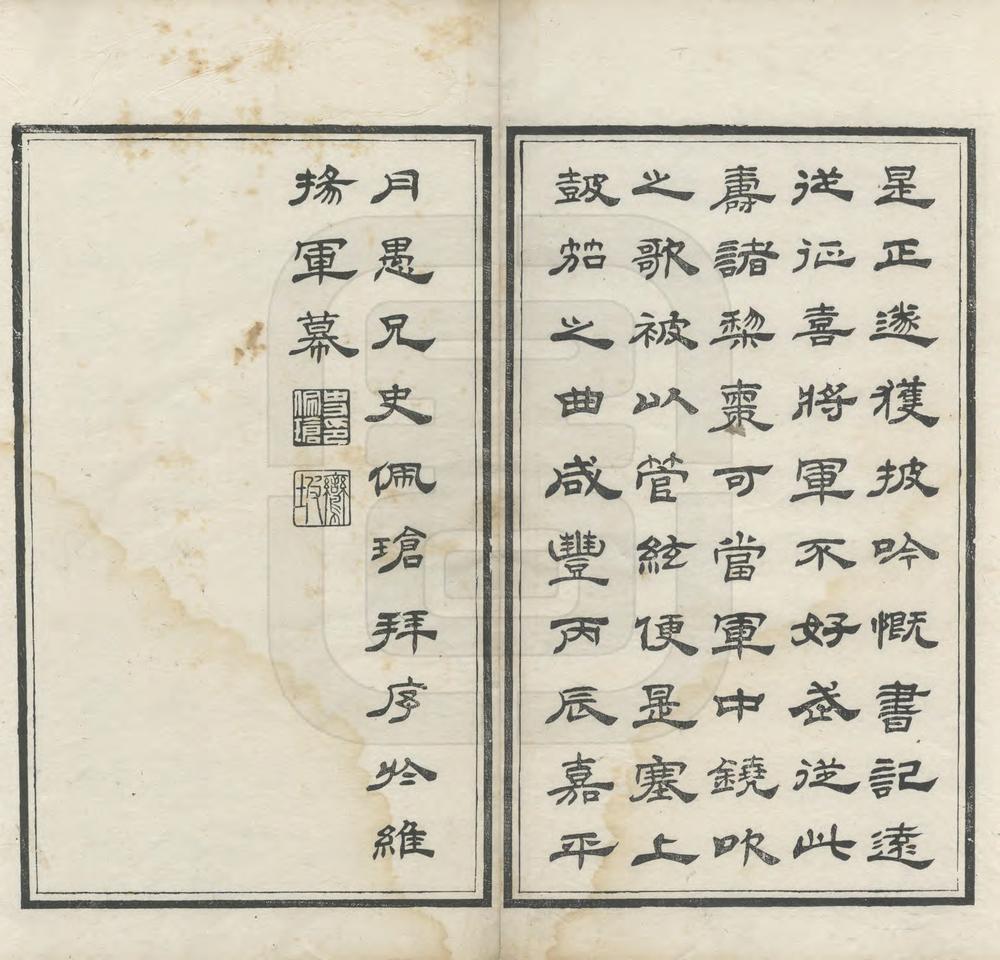 是正遂獲披吟慨書記遠
從征喜將軍不好武從此
壽諸棃棗可當軍中鐃吹
之歌被以管絃便是塞上
鼓笳之曲咸豐丙辰嘉平
月愚兄史佩瑲拜序於維
揚軍幕
史印佩瑲
鸞坡